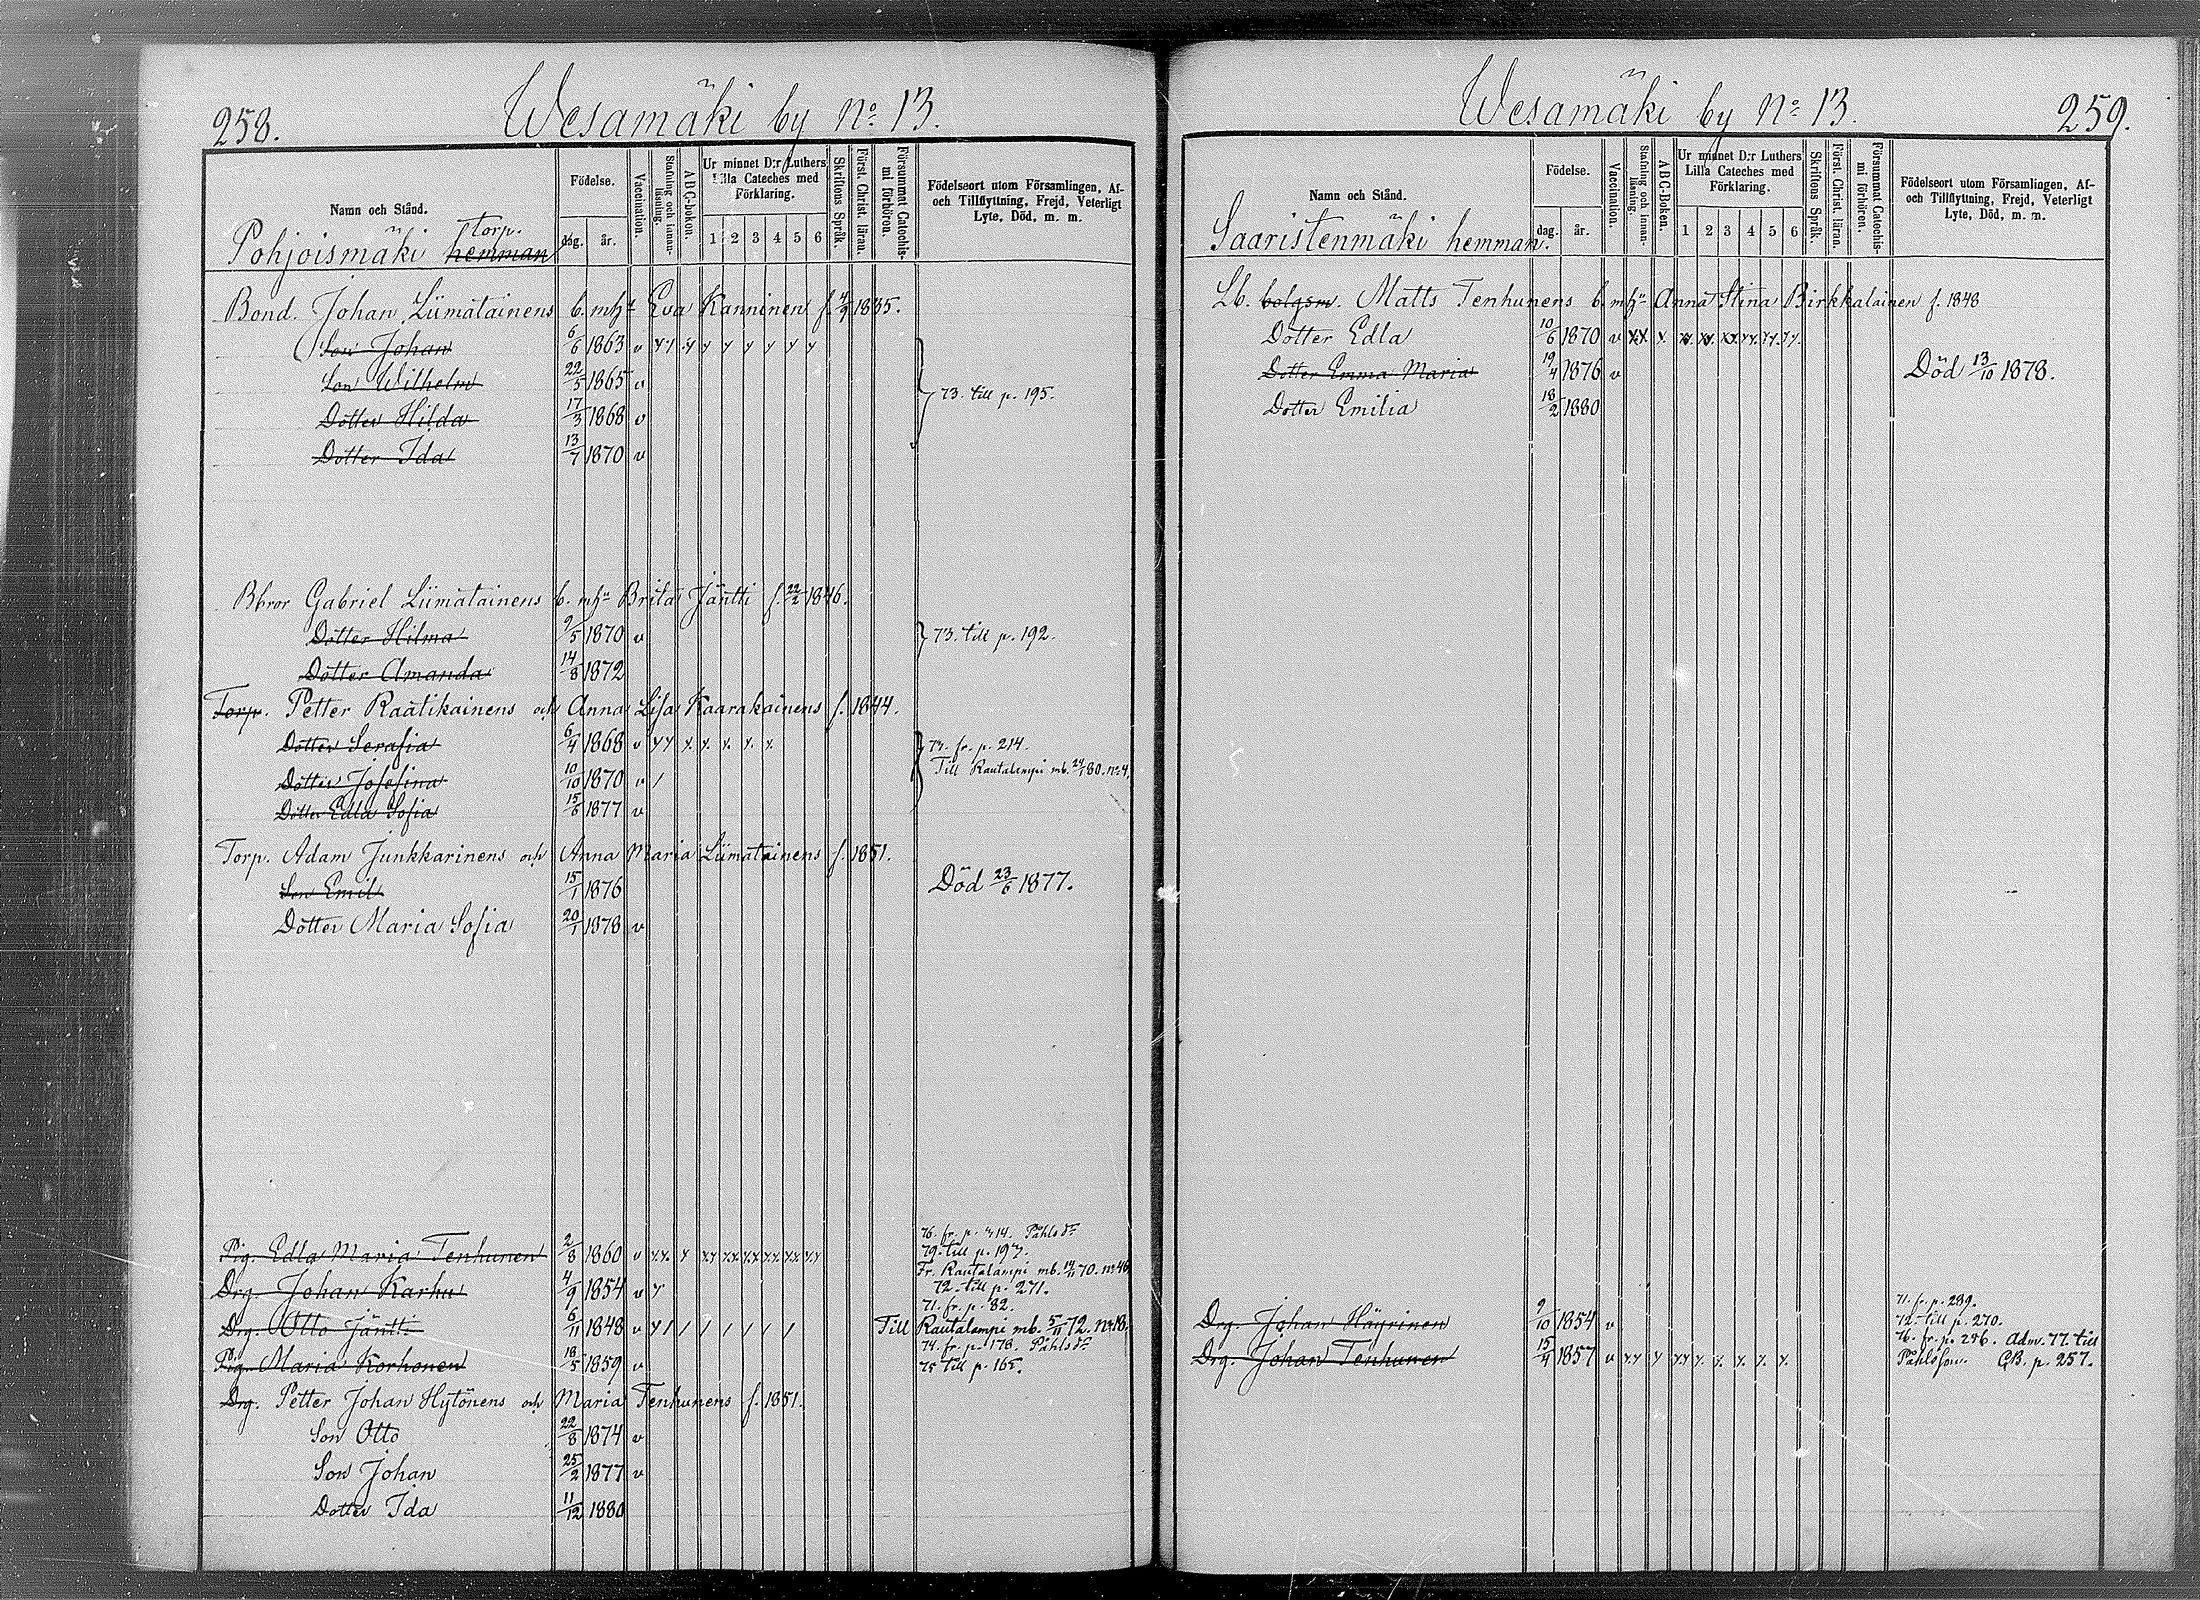 258.
Wesamäki by No 13.
Namn och Stånd.
Födelse.
dag.
år.
Vaccination.
Stafning och innan-läsning.
A B C-boken.
Ur minnet D:r Luthers Lilla Cateches med Förklaring.
1 2 3 4 5 6
Skriftens Språk.
Först. Christ. läran.
Försummat Catechis-mi förhören.
Födelseort utom Församlingen, Af-
och Tillflyttning, Frejd, Veterligt
Lyte, Död, m. m.
torp.
Pohjoismäki hemman
Bond. Johan Liimatainens b. mh Eva Kanninen f. 4/9 1835.
Son Johan 6/6 1863 v
Son Wilhelm 22/5 1865 v
73. till p. 195.
Dotter Hilda 17/3 1868 v
Dotter Ida 13/7 1870 v
Bbror Gabriel Liimatainens b. mh Brita Jäntti f. 22/2 1846.
Dotter Hilma 9/5 1870 v
73. till p. 192.
Dotter Amanda 14/8 1872
Torp. Petter Raatikainens och Anna Lisa Kaarakainens f. 1844.
Dotter Serafia 6/4 1868 v
73. fr. p. 214.
Till Rautalampi mb. 80. No 4.
Dotter Josefina 10/10 1870 v
Dotter Edla Sofia 15/6 1877 v
Torp. Adam Junkkarinens och Anna Maria Liimatainens f. 1851.
Son Emil 15/1 1876 Död 23/6 1877.
Dotter Maria Sofia 20/1 1878 v
76. fr. p. 414. Påhlsdr
Pig. Edla Maria Tenhunen 2/8 1860 v
79. till p. 197.
Fr. Rautalampi mb. 14/11 70. No 46
Drg. Johan Karhu 4/9 1854 v
72. till p. 271.
71. fr. p. 82.
Drg. Otto Jäntti 6/11 1848 v Till Rautalampi mb. 5/11 72. No 18.
74. fr. p. 178. Påhlsdr
Pig. Maria Korhonen 18/5 1859 v
75 till p. 165.
Drg. Petter Johan Hytönens och Maria Tenhunens f. 1851.
Son Otto 22/8 1874 v
Son Johan 25/2 1877 v
Dotter Ida 11/12 1880
Wesamäki by No 13.
259.
Namn och Stånd.
Födelse.
dag.
år.
Vaccination.
Stafning och innan-läsning.
A B C-Boken.
Ur minnet D:r Luthers Lilla Cateches med Förklaring.
1 2 3 4 5 6
Skriftens Språk.
Först. Christ. läran.
Försummat Catechis-mi förhören.
Födelseort utom Församlingen, Af-
och Tillflyttning, Frejd, Veterligt
Lyte, Död, m. m.
Saaristenmäki hemman.
Lb. bolgsm. Matts Tenhunens b. mh Anna Stina Birkkalainen f. 1848
Dotter Edla 10/6 1870 v
Dotter Emma Maria 19/4 1876 v Död 13/10 1878.
Dotter Emilia 18/2 1880
71. fr. p. 289.
Drg. Johan Häyrinen 9/10 1854 v
72. till p. 270.
76. fr. p. 246. Adm. 77. till
Drg. Johan Tenhunen 15/4 1857 v
Påhlsson. CB. p. 257.